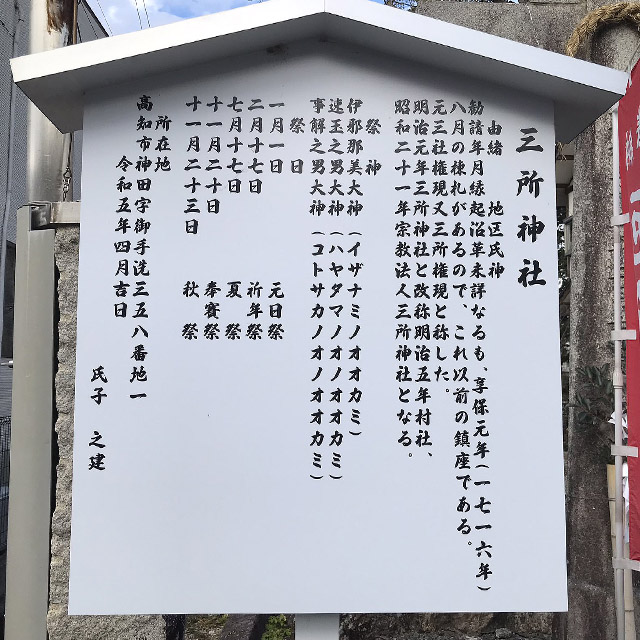 三所神社
由緒　地区氏神
勧請年月縁起沿革未詳なるも、享保元年(一七一六年)
八月の棟札があるので、これ以前の鎮座である。
元三社権現又三所権現と称した。
明治元年三所神社と改称明治五年村社、
昭和二十一年宗教法人三所神社となる。
祭神
伊邪那美大神(イザナミノオオカミ)
速玉之男大神(ハヤタマノオノオオカミ)
事解之男大神(コトサカノオノオオカミ)
祭日
一月一日　元日祭
二月十七日　祈年祭
七月十七日　夏祭
十一月二十日　奉賽祭
十一月二十三日　秋祭
所在地
高知市神田字御手洗三五八番地一
令和五年四月吉日
氏子　之建